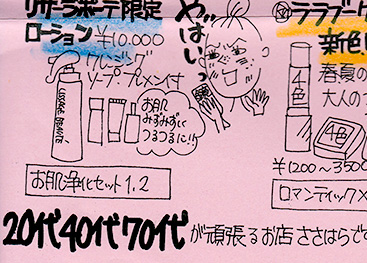 リサージボーテ限定
ローション ¥10,000
クレンジング
ソープ・プレメン付
やばいっ
LISSAGE BEAUTE
お肌
みずみずしく
つるつるに!!
お肌浄化セット1.2
ララブーケ
新色
春夏の
大人の
4色
4色
¥1200~3500
ロマンティック×
20代40代70代が頑張るお店 ささはらです